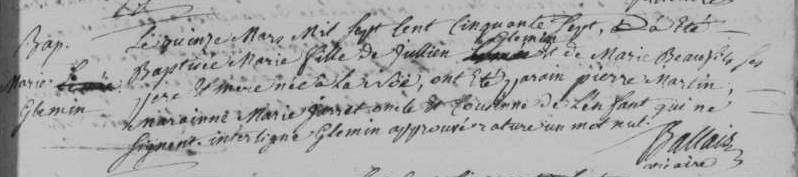 Bap.
Marie
Glemin
Le quinze Mars Mil sept cent cinquante sept, a Eté
Glemin
Baptisée Marie fille de Jullien et de Marie Beaufils ses
pere et mere née à la ont Eté parain pierre Martin,
marainne Marie oncle et Cousinne de L'enfant qui ne
signent. interligne Glemin approuvé rature un mot nul.
Ballais
vicaire